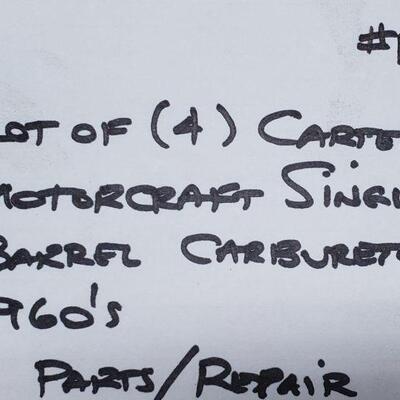 #
LOT OF (4) CARTE
MOTORCRAFT SINGL
BARREL CARBURETO
1960's
PARTS/REPAIR